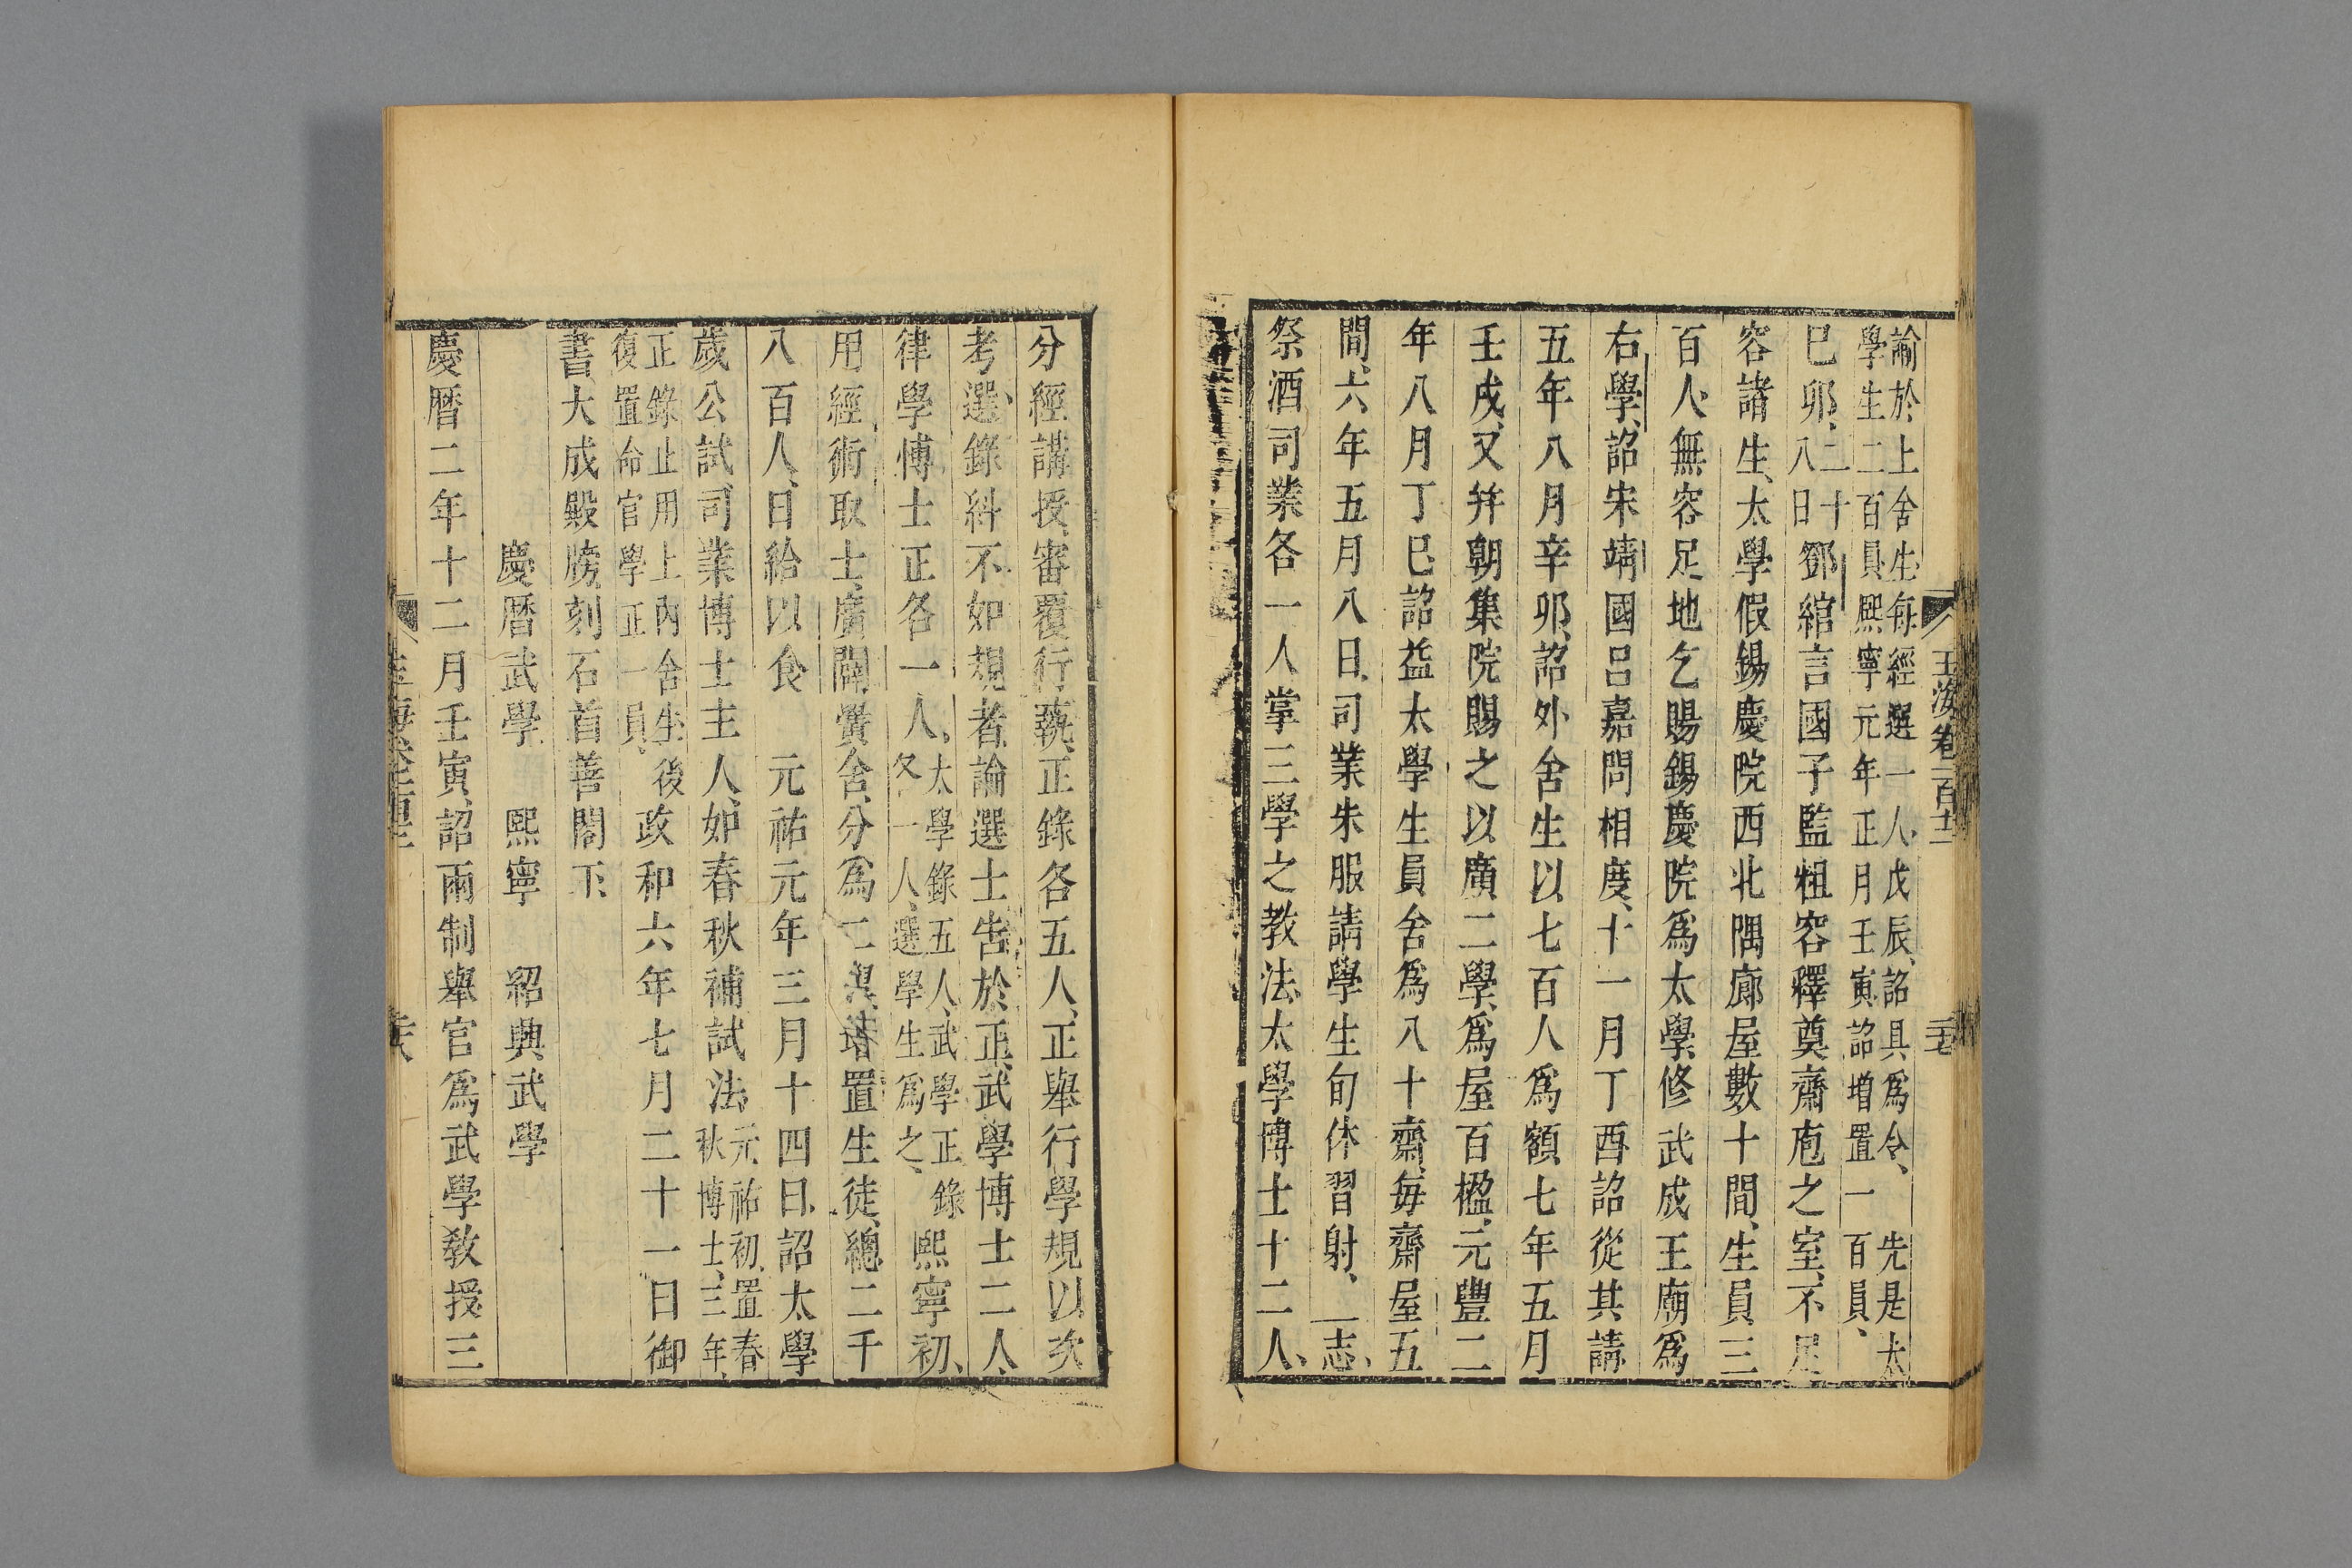 玉海卷一百十二
二十七
諭於上舍生每經選一人戊辰詔具爲令、先是太
學生二百員熙寧元年正月壬寅詔增置一百員、
巳卯、二十八日鄧綰言國子監粗容釋奠齋庖之室、不足
容諸生、太學假錫慶院西北隅廊屋數十間、生員三
百人、無容足地乞賜錫慶院爲太學修武成王廟爲
右學、詔宋靖國呂嘉問相度、十一月丁酉詔從其請
五年八月辛卯、詔外舍生以七百人爲額七年五月
壬戌、又幷朝集院賜之以廣二學、爲屋百楹、元豐二
年八月丁巳詔益太學生員舍爲八十齋、每齋屋五
間、六年五月八日、司業朱服請學生旬休習射、一志、
祭酒司業各一人掌三學之教法、太學博士十二人、
分經講授、審覆行藝、正錄各五人、正舉行學規以次
考選、錄糾不如規者論選士告於正、武學博士二人、
律學博士正各一人、太學錄五人、武學正錄各一人、選學生爲之、熙寧初、
用經術取士、廣闢黌舍、分爲二學、增置生徒、總二千
八百人、日給以食 元祐元年三月十四日、詔太學
歲公試、司業博士主人、如春秋補試法元祐初、置春秋博士、三年、
正錄止用上內舍生、後復置命官學正一員、政和六年七月二十一日御
書大成殿牓、刻石首善閣下、
慶曆武學 熙寧 紹興武學
慶曆二年十二月壬寅、詔兩制舉官爲武學教授三